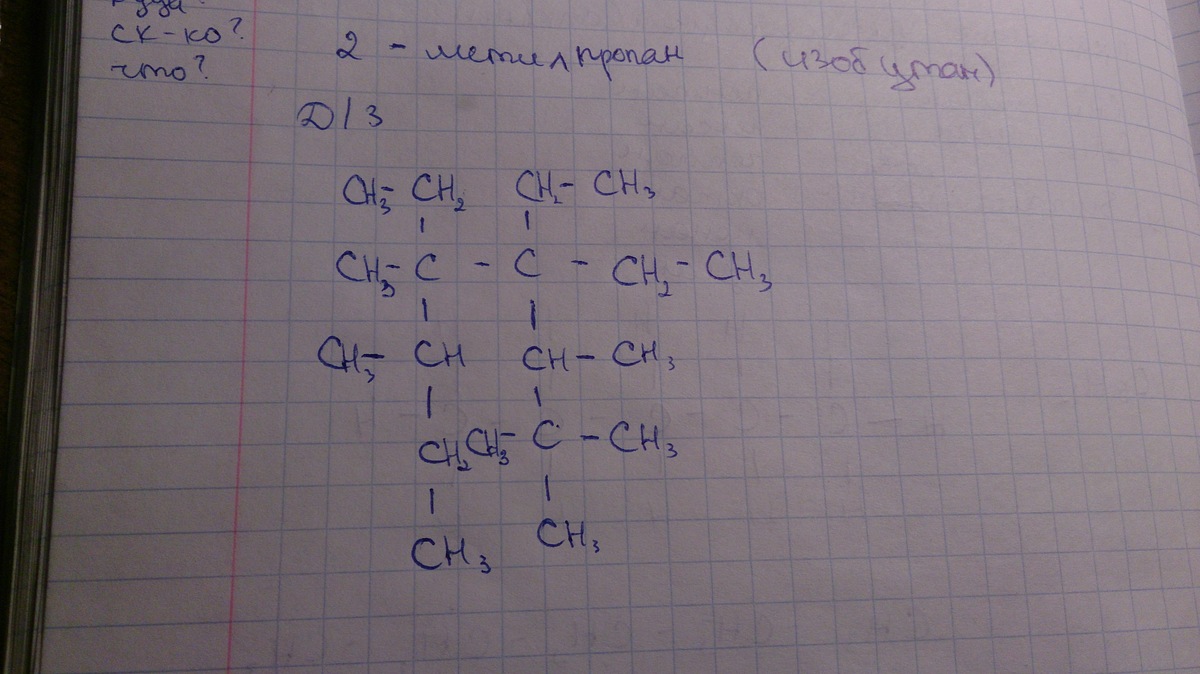 ск-ко?
что?
2 - метилпропан (изобутан)
Д/З
CH₃- CH₂ CH₂- CH₃
CH₃- C - C - CH₂- CH₃
CH₃- CH CH- CH₃
CH₂ CH₃- C - CH₃
CH₃ CH₃